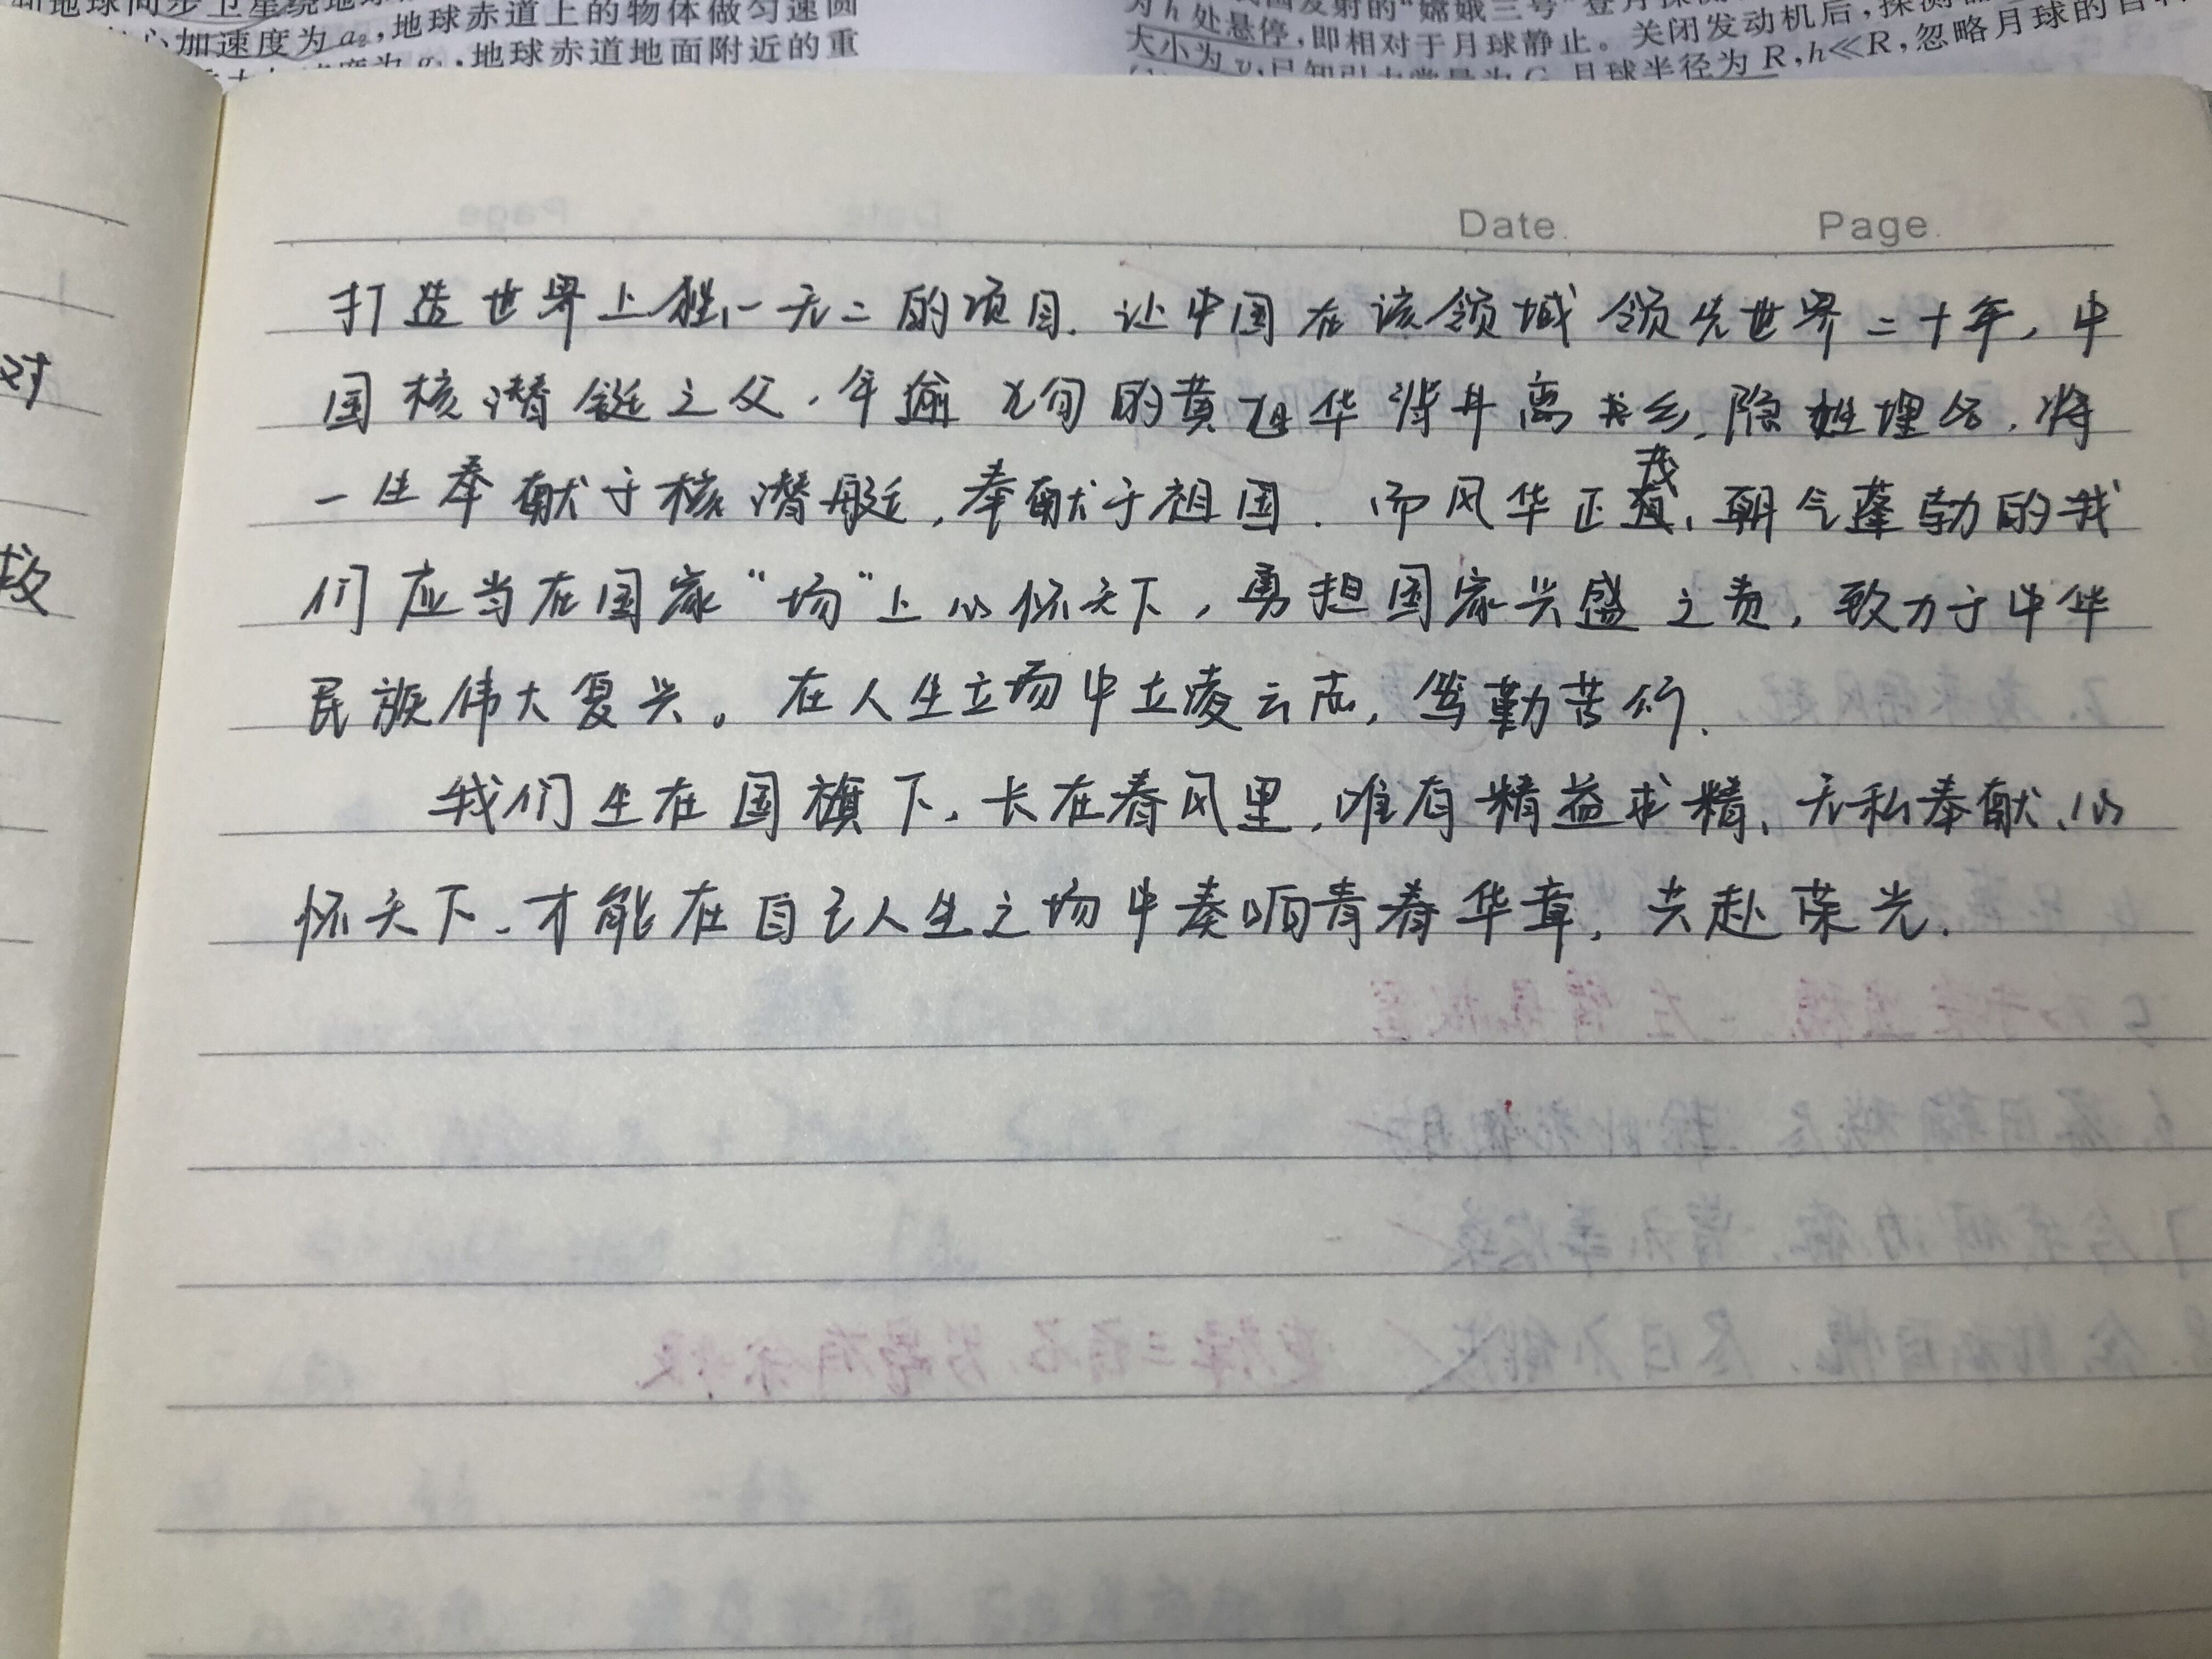 心加速度为a₂,地球赤道上的物体做匀速圆
,地球赤道地面附近的重
为h处悬停,即相对于月球静止。关闭发动机后,探
大小为v,已知引力常量为G,月球半径为R,h≪R,忽略月球的自
Date. Page.
对
救
打造世界上独一无二的项目.让中国在该领域领先世界二十年,中
国核潜艇之父.年逾九旬的黄旭华背井离乡,隐姓埋名.将
一生奉献于核潜艇,奉献于祖国.而风华正茂、朝气蓬勃的我
们应当在国家“场”上心怀天下,勇担国家兴盛之责,致力于中华
民族伟大复兴。在人生立场中立凌云志,笃勤苦行.
我们生在国旗下.长在春风里,唯有精益求精、无私奉献、心
怀天下.才能在自己人生之场中奏响青春华章,共赴荣光.